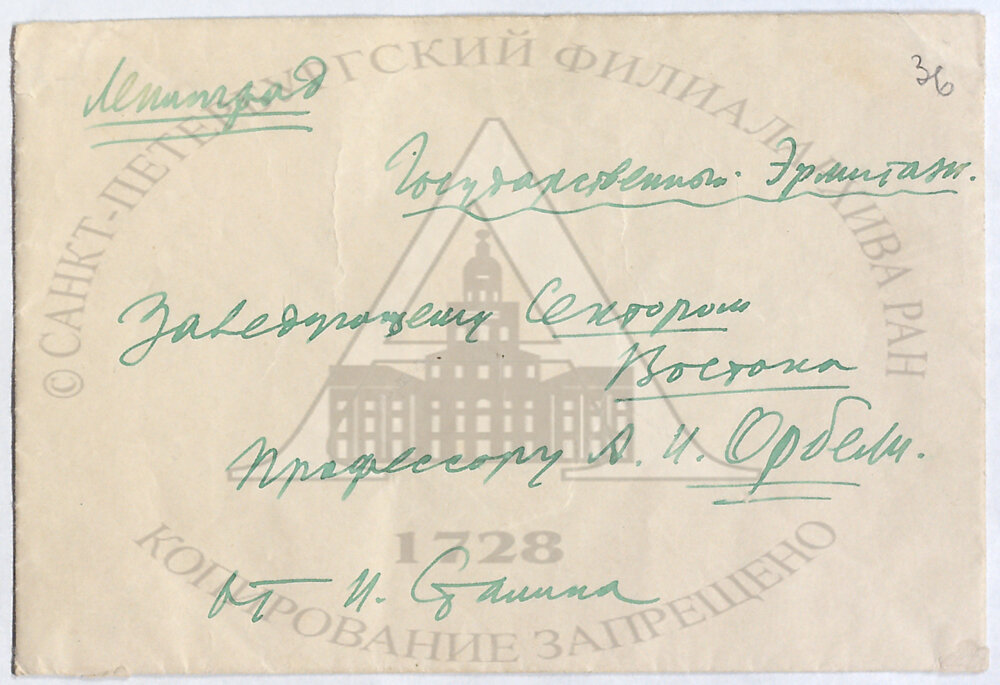 Ленинград
36
Государственный Эрмитаж.
Заведующему Сектором
Востока
Профессору А. И. Орбели.
от И. Сталина
© САНКТ-ПЕТЕРБУРГСКИЙ ФИЛИАЛ АРХИВА РАН
1728
КОПИРОВАНИЕ ЗАПРЕЩЕНО